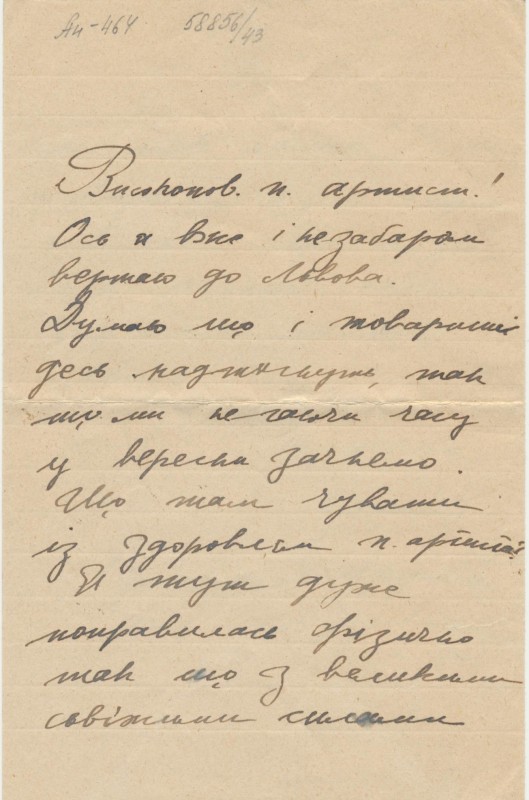 Ан-464 58856/43
Високопов. п. артист!
Ось я вже і незабаром
вертаю до Львова.
Думаю що і товариші
десь надтягнуть, так
що ми не гаючи часу
у вересни зачнемо.
Що там чувати
із здоровлям п. артиста?
Я тут дуже
поправилась фізично
так що з великими
свіжими силами